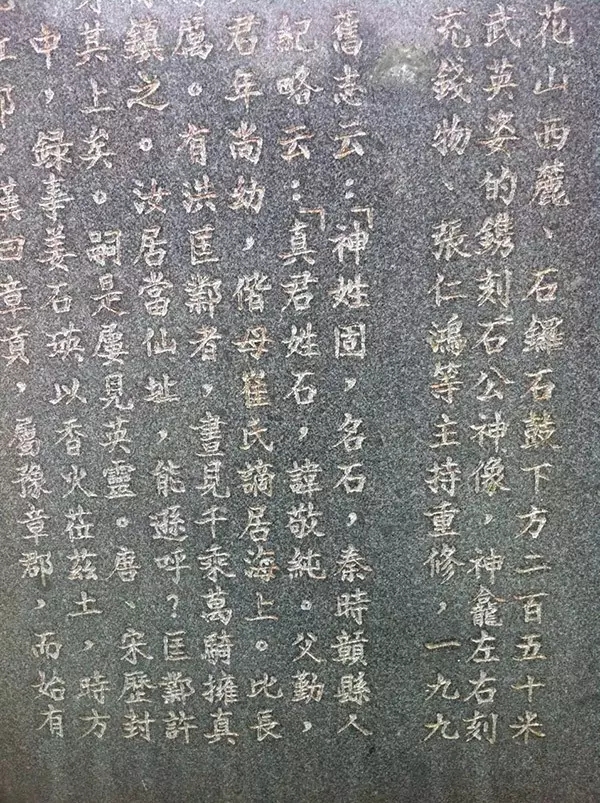 花山西麓、石鑼石鼓下方二百五十米
武英姿的鐫刻石公神像，神龕左右刻
充錢物、張仁鴻等主持重修，一九九
舊志云：「神姓固，名石，秦時贛縣人
紀略云：「真君姓石，諱敬純。父勤，
君年尚幼，偕母崔氏謫居海上。比長
厲。有洪匡鄰者，晝見千乘萬騎擁真
鎮之。汝居當仙址，能遜呼？匡鄰許
其上矣。嗣是屢見英靈。唐、宋歷封
申，録事姜石瑛以香火莅茲土，時方
郡，漢曰章貢，屬豫章郡，而始有